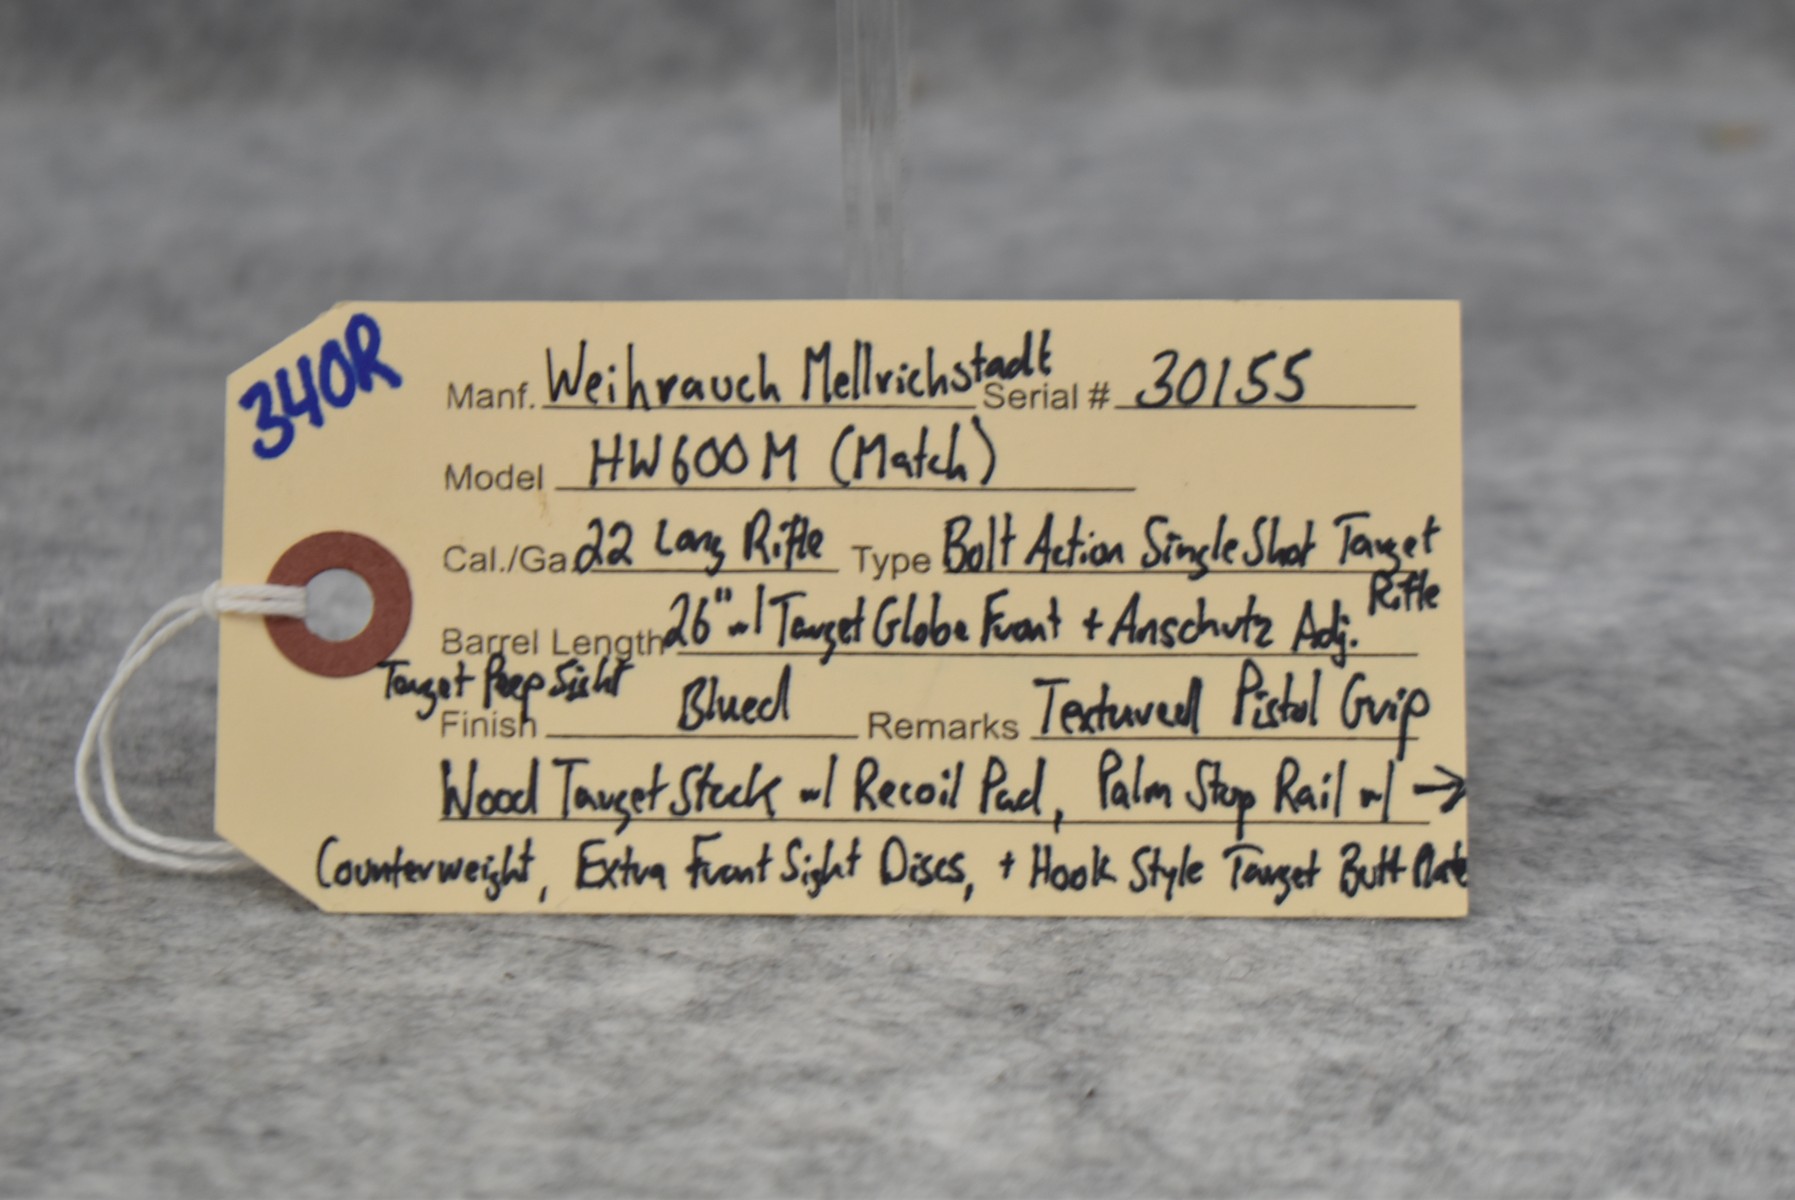 340R
Manf. Weihrauch Mellrichstadt Serial # 30155
Model HW600M (Match)
Cal./Ga. 22 Long Rifle Type Bolt Action Single Shot Target Rifle
Barrel Length 26" w/ Target Globe Front + Anschutz Adj.
Target Peep Sight
Finish Blued Remarks Textured Pistol Grip
Wood Target Stock w/ Recoil Pad, Palm Stop Rail w/ →
Counterweight, Extra Front Sight Discs, + Hook Style Target Butt Plate